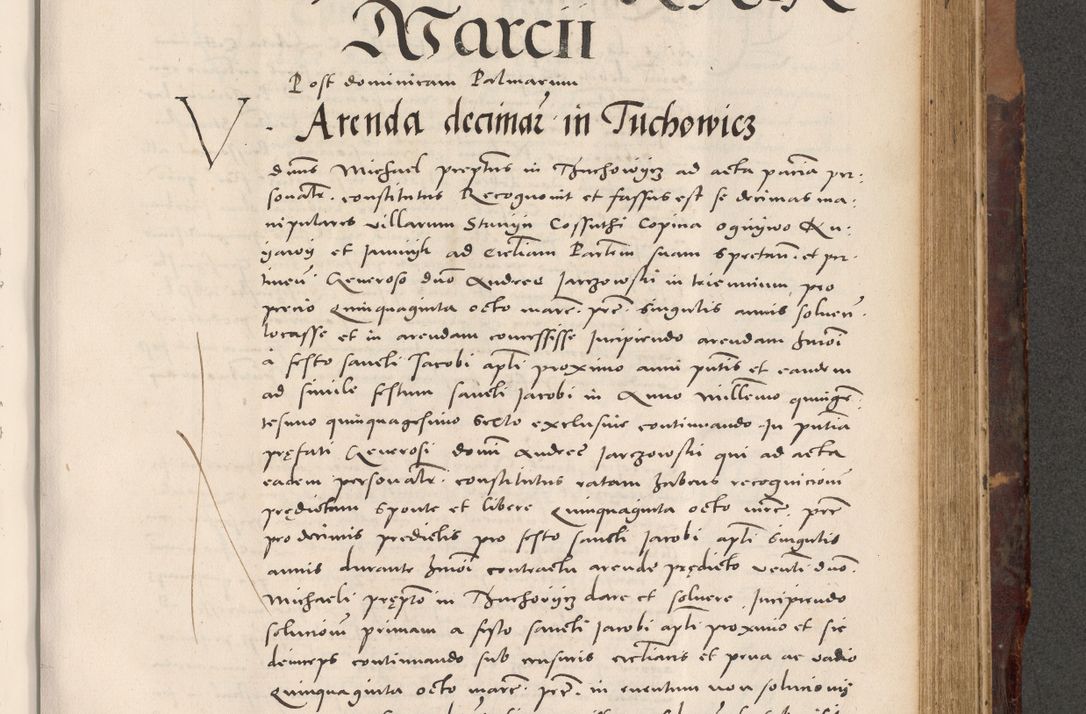 Marcii
Post dominicam Palmarum
V. Arenda decimar̃ in Tuchowicz
dnus Michael prepẗus in Thuchowycz ad acta pn̄cia per-
sonalr̃. constitutus Recognouit et fassus est se decimas ma-
nipulares villarum Cossuthi Copina
et ad Ecc̄liam Partem suam spectan̄. et per-
tinen̄ Generoso dnō Andreę Jarczowski in triennium pro
precio Quinquaginta octo marc̄. pec̄. singulis annis soluen̄.
locasse et in arendam concessisse Incipiendo arendam hm̄oi
à festo sancti Jacobi apl̄i proximo anni pn̄tis et eandem
ad simile festum sancti Jacobi in Anno Millesimo quingẽ-
tesimo quinquagesimo Sexto exclusiue continuando. In pn̄tia
pręfati Generosi domī Andreę Jarczowski qui ad acta
eadem personalr̃. constitutus ratam habens recognicionē
prędictam sponte et libere Quinquaginta octo mrc̄. pec̄
pro decimis predictis pro festo sancti Jacobi apl̄i singulis
annis durante hm̄oi contractu arendę prędicto Ven̄li dnō
Michaeli pręptō in Thuchowycz dare et soluere Incipiendo
solucionē primam a festo sancti Jacobi apl̄i proximo et sic
deinceps continuando sub censuris eccl̄iacis et pena ac vadio
Quinquaginta octo marc̄. pec̄. in euentum non solucionis